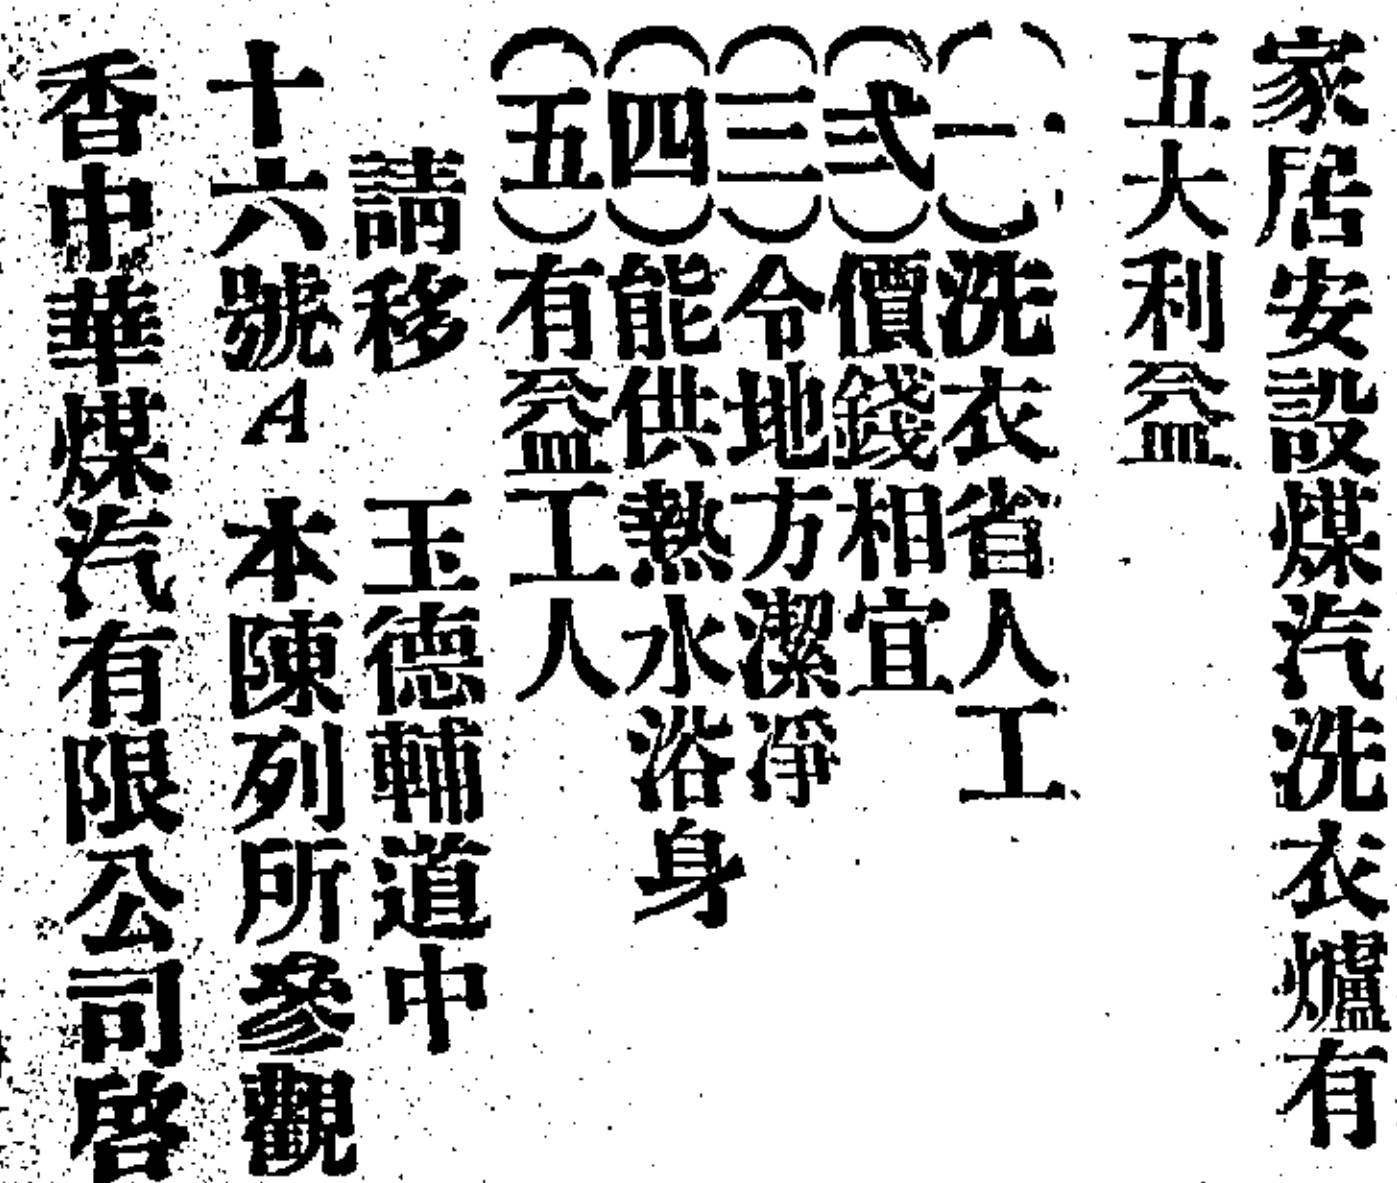 家居安設煤汽洗衣爐有
五大利益
(一)洗衣省人工
(弍)價錢相宜
(三)令地方潔凈
(四)能供熱水浴身
(五)有益工人
請移 玉德輔道中
十六號A 本陳列所參觀
香中華煤汽有限公司啓